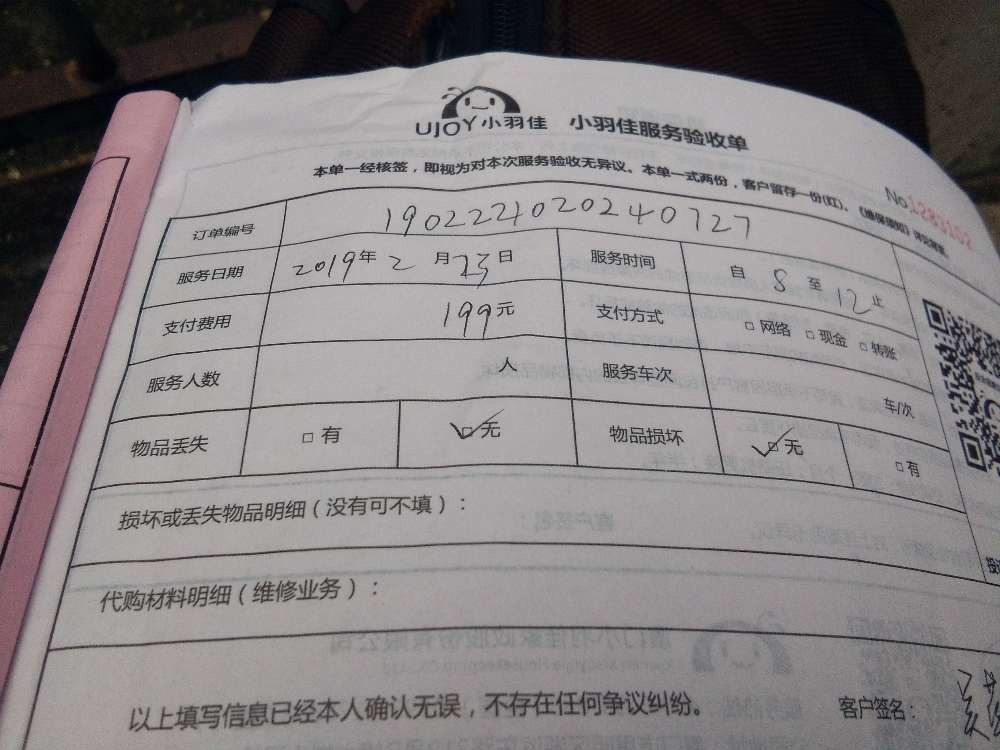 UJOY小羽佳 小羽佳服务验收单
本单一经核签，即视为对本次服务验收无异议。本单一式两份，客户留存一份(红)、
No.1283102
订单编号 1902221020240727
服务日期 2019年2月23日 服务时间 自8至12止
支付费用 199元 支付方式 □网络 □现金 □转账
服务人数 人 服务车次 车/次
物品丢失 □有 ☑无 物品损坏 ☑无 □有
损坏或丢失物品明细（没有可不填）：
代购材料明细（维修业务）：
以上填写信息已经本人确认无误，不存在任何争议纠纷。 客户签名：